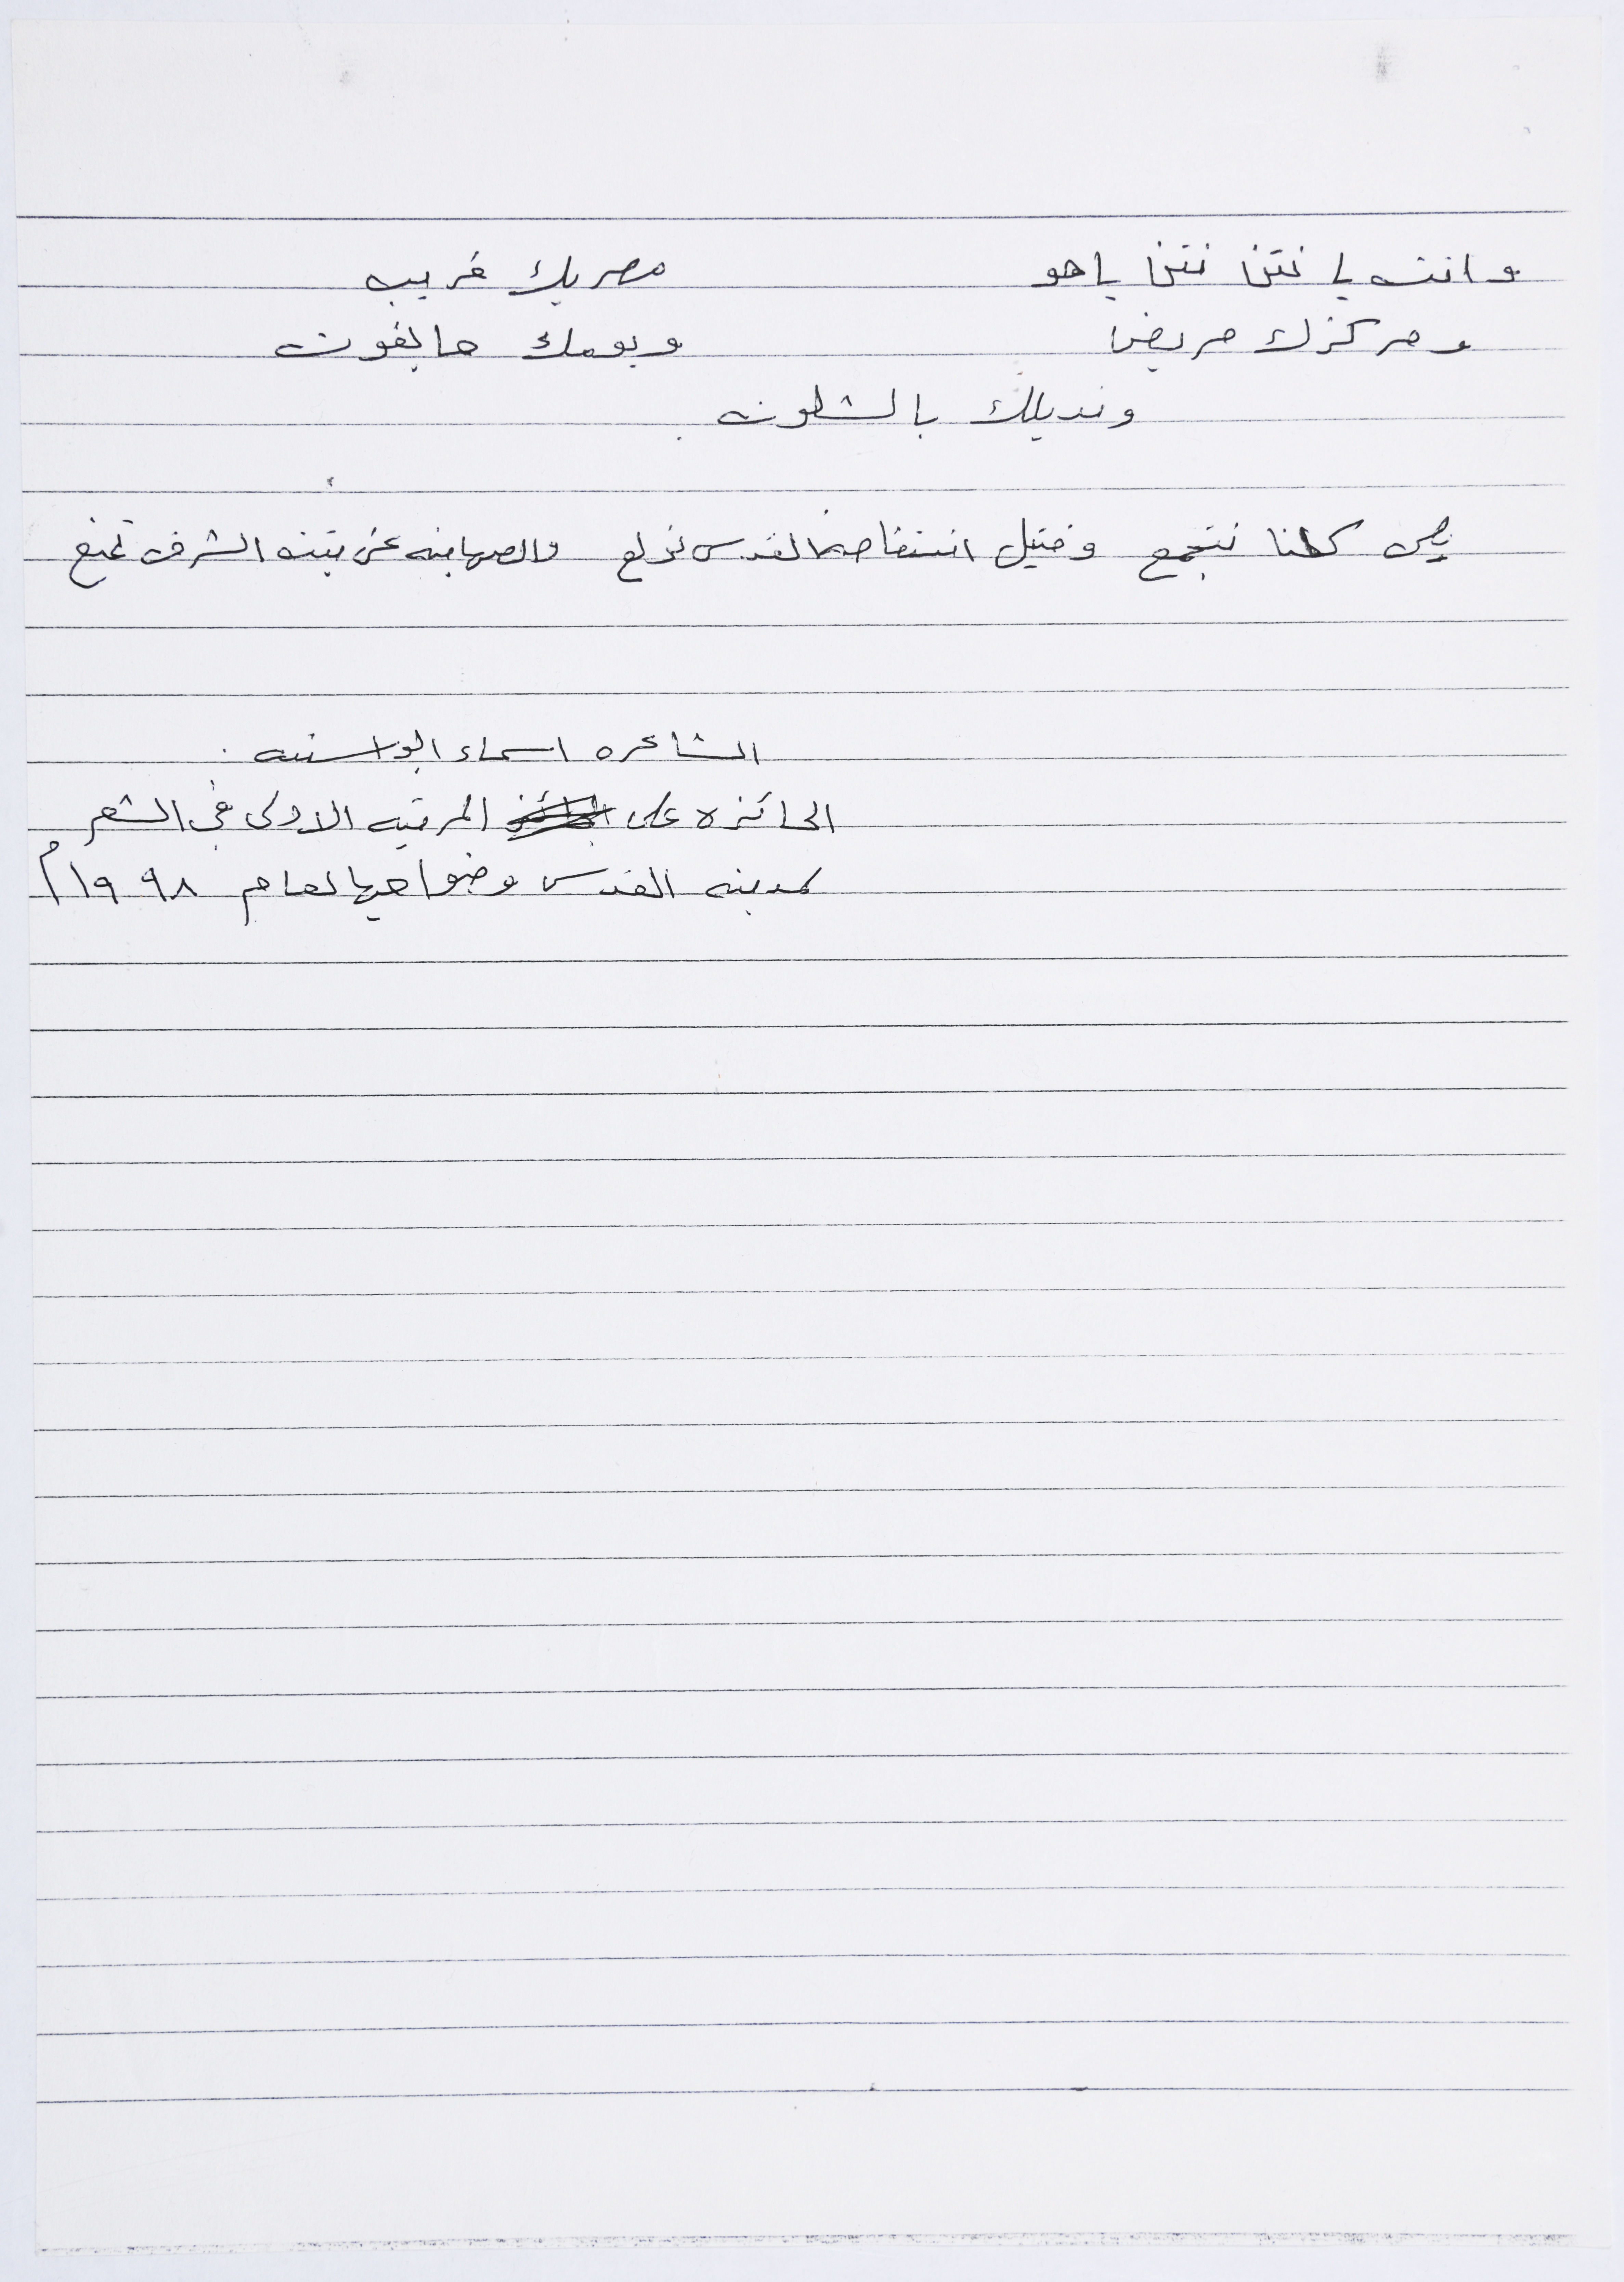 وانت يا نتن نتن ياهو مصريك قريب
ومركزك مريض ويومك ما يفوت
ونديلك بالشلون
يلي كلنا نتجمع وفتيل انتفاضة القدس نولع والصهاينه عن بيته الشرف تمنع
الشاعره اسماء ابو اسنينه
الحائزه على المرتبه الاولى في الشعر
لمدينه القدس وضواحيها لعام ١٩٩٨م